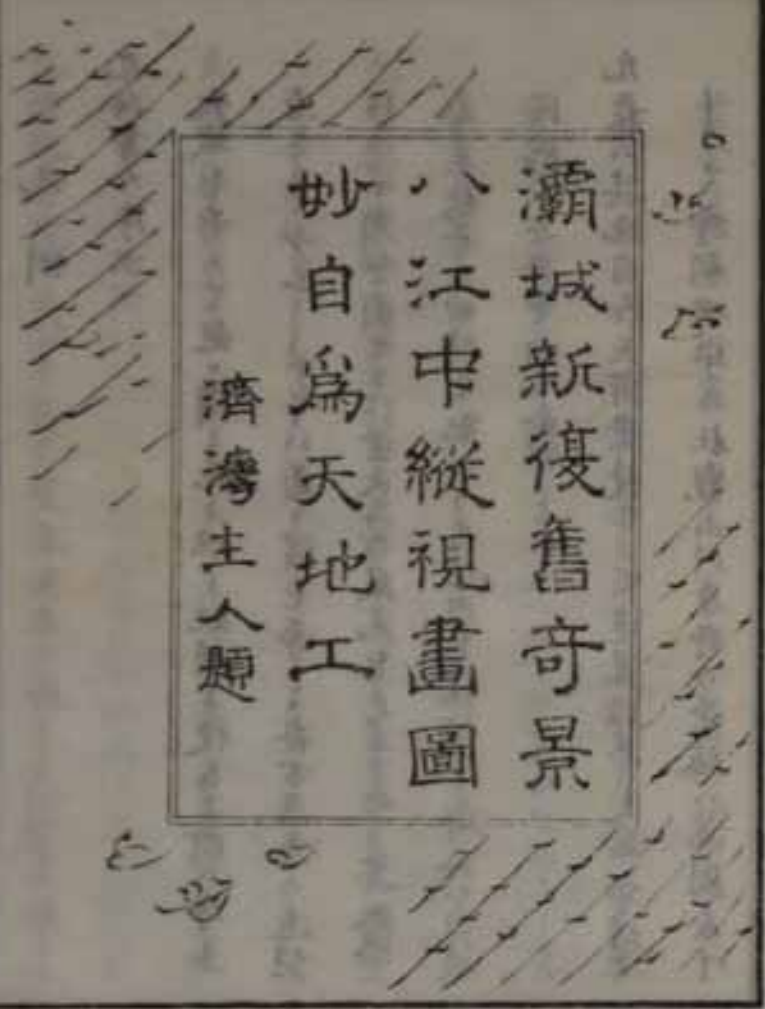 灞城新復舊奇景
八江中縱視畫圖
妙自爲天地工
濟灣主人題